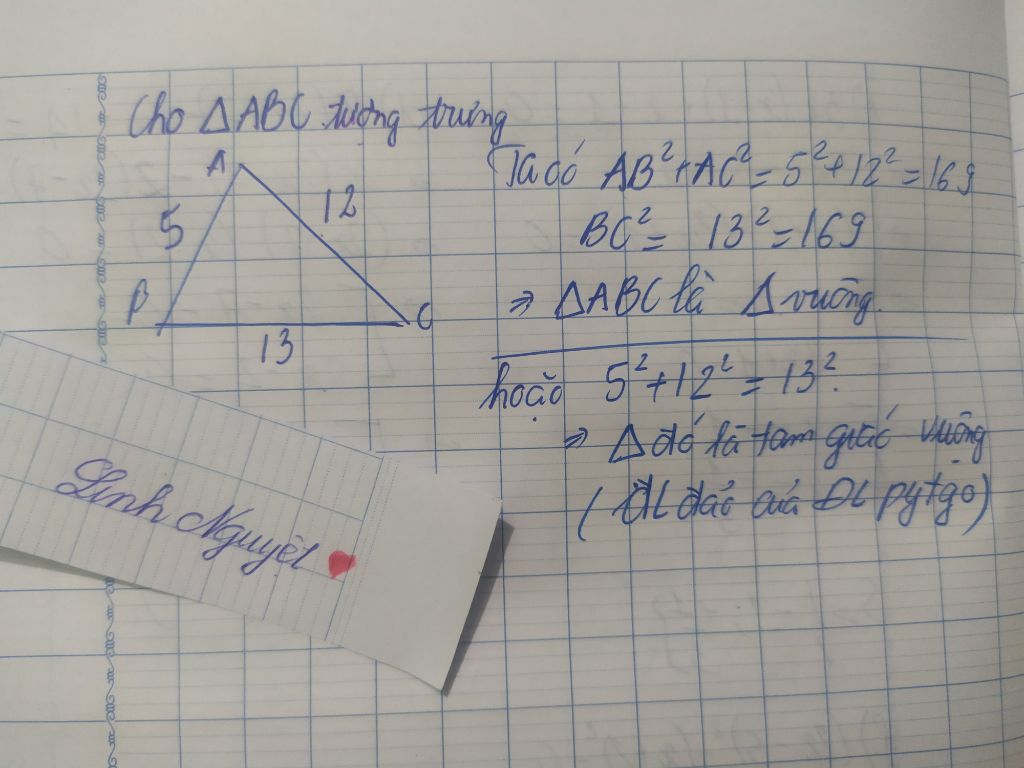 Cho ΔABC tượng trưng
A
5
12
B
C
13
Ta có AB² + AC² = 5² + 12² = 169
BC² = 13² = 169
⇒ ΔABC là Δ vuông.
hoặc 5² + 12² = 13².
⇒ Δ đó là tam giác vuông
(ĐL đảo của ĐL pytago)
Linh Nguyệt